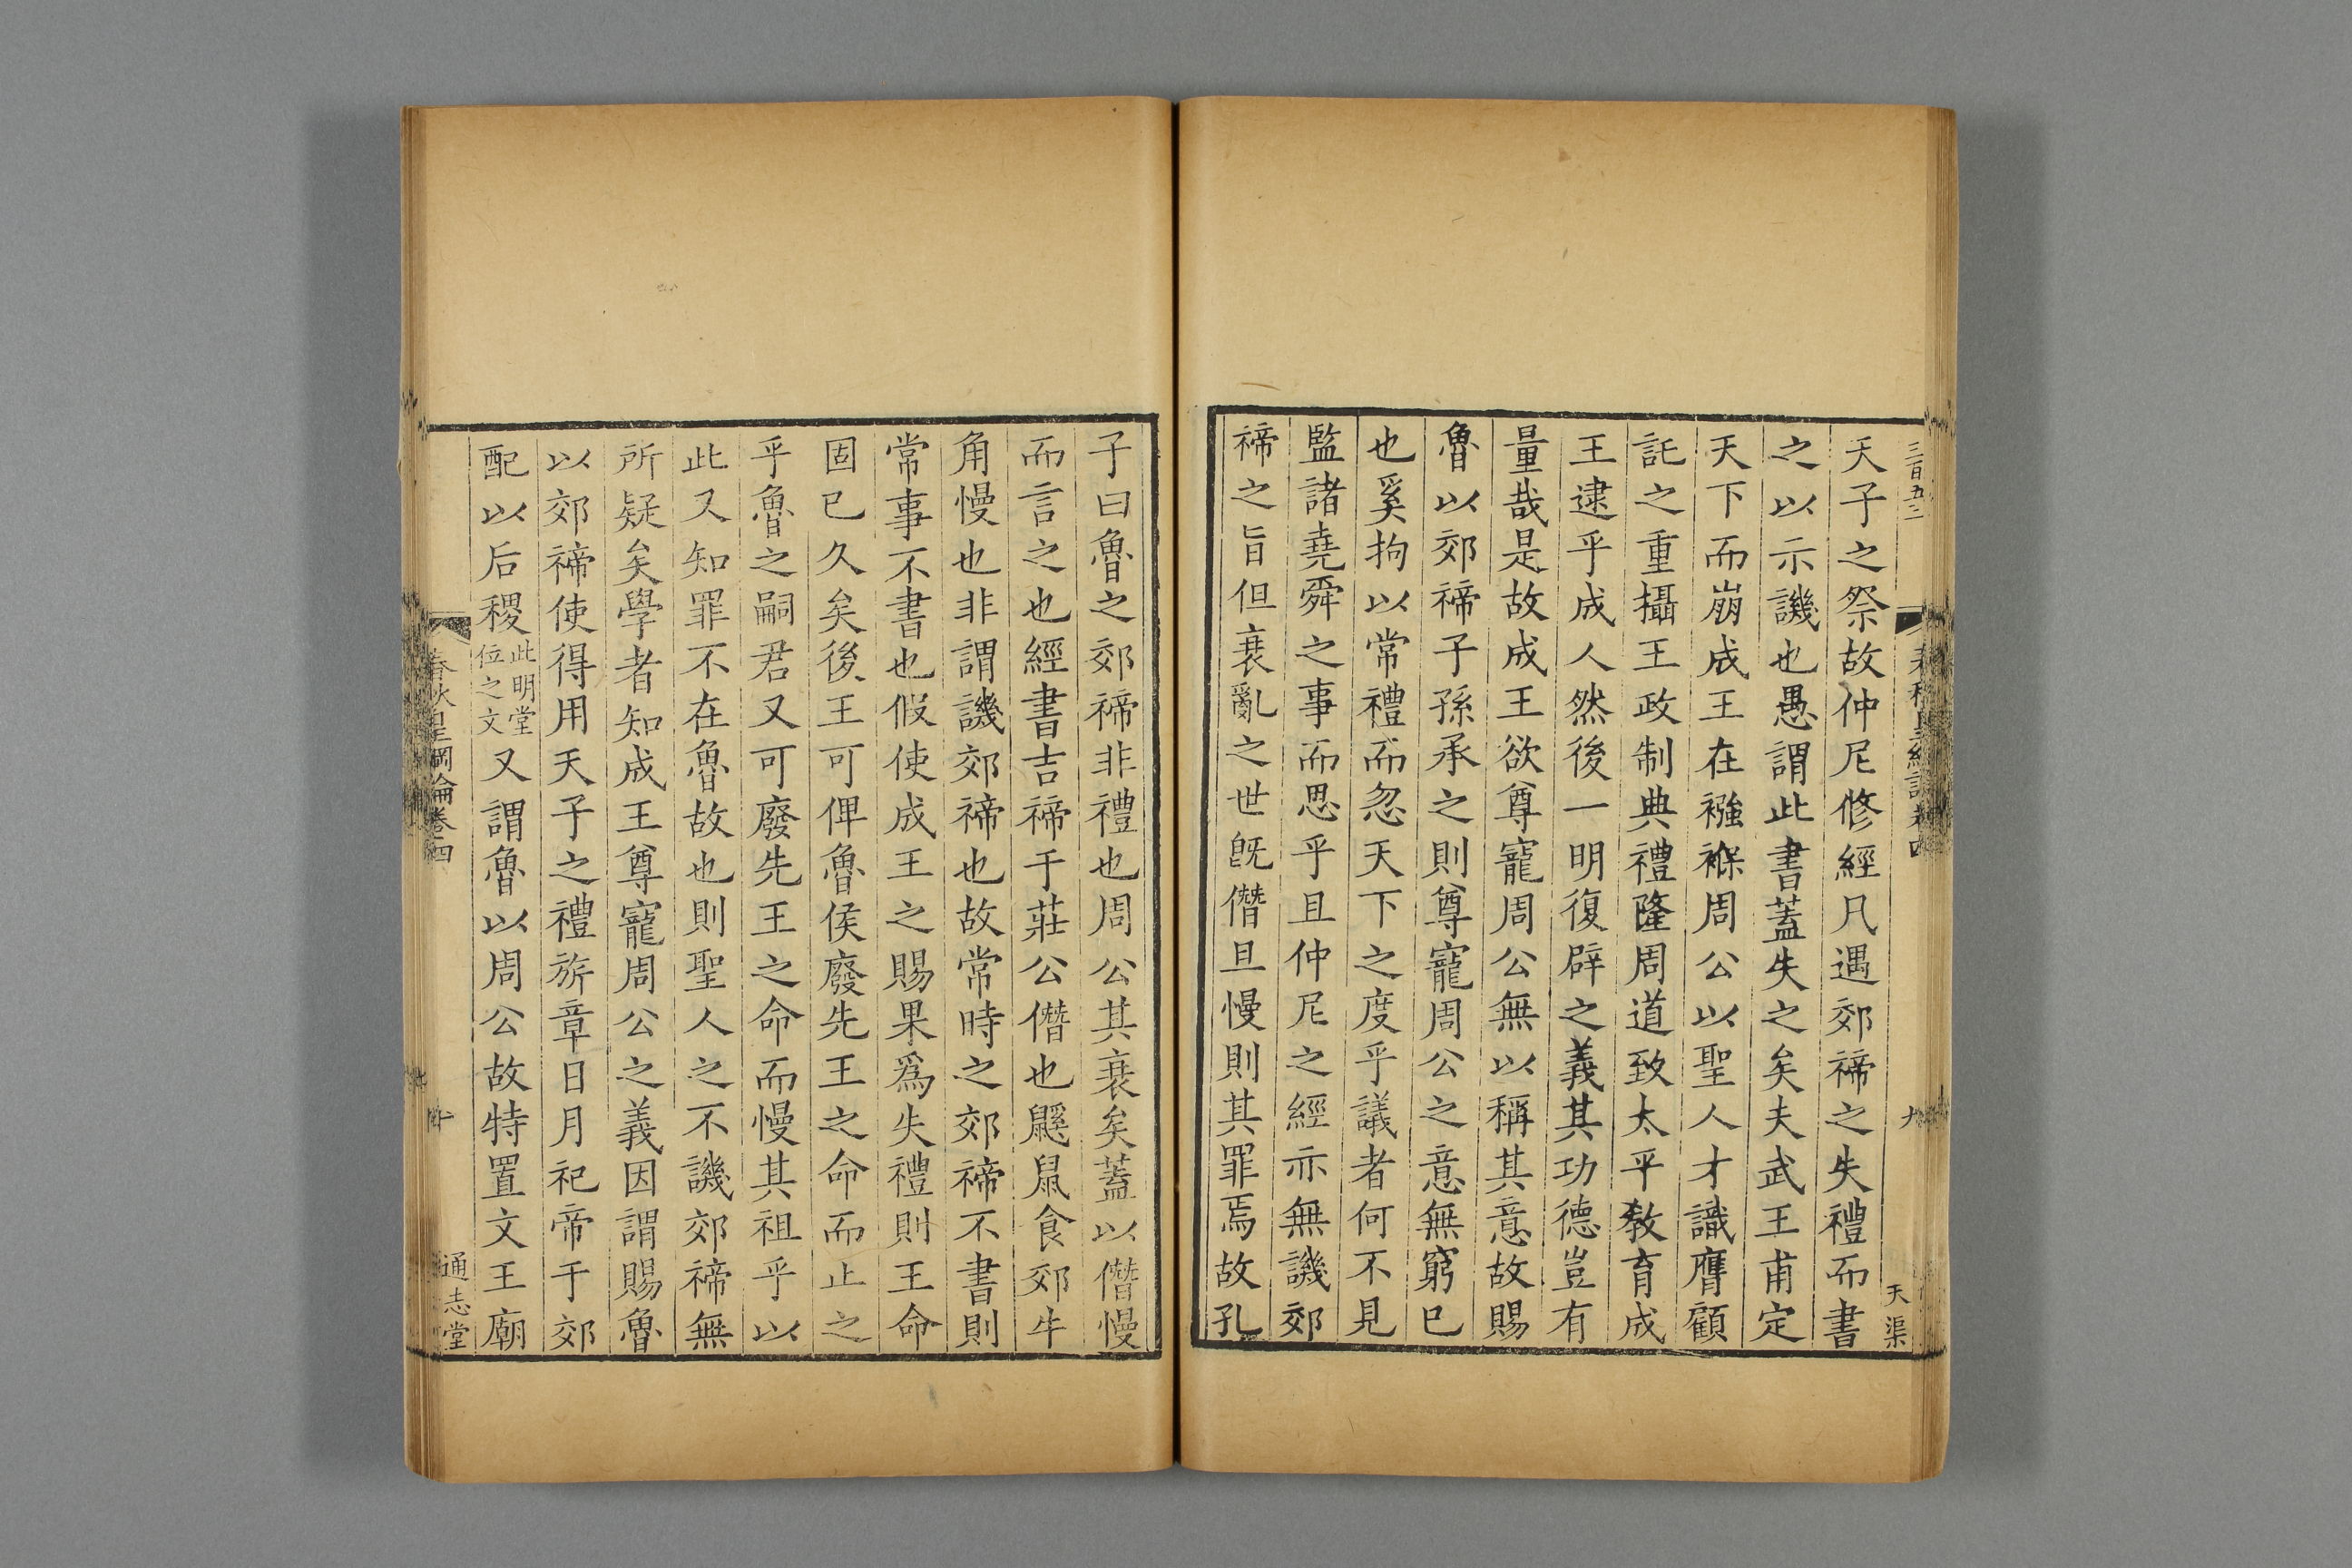 三百五三
天子之祭故仲尼修經凡遇郊禘之失禮而書
之以示譏也愚謂此書蓋失之矣夫武王甫定
天下而崩成王在襁褓周公以聖人才識膺顧
託之重攝王政制典禮隆周道致太平敎育成
王逮乎成人然後一明復辟之義其功德豈有
量哉是故成王欲尊寵周公無以稱其意故賜
魯以郊禘子孫承之則尊寵周公之意無窮已
也奚拘以常禮而忽天下之度乎議者何不見
監諸堯舜之事而思乎且仲尼之經亦無譏郊
禘之旨但衰亂之世旣僭且慢則其罪焉故孔
九
天渠
子曰魯之郊禘非禮也周公其衰矣蓋以僭慢
而言之也經書吉禘于莊公僭也鼷鼠食郊牛
角慢也非謂譏郊禘也故常時之郊禘不書則
常事不書也假使成王之賜果爲失禮則王命
固已久矣後王可俾魯侯廢先王之命而止之
乎魯之嗣君又可廢先王之命而慢其祖乎以
此又知罪不在魯故也則聖人之不譏郊禘無
所疑矣學者知成王尊寵周公之義因謂賜魯
以郊禘使得用天子之禮旂章日月祀帝于郊
配以后稷此明堂位之文又謂魯以周公故特置文王廟
春秋皇綱論卷四
十
通志堂